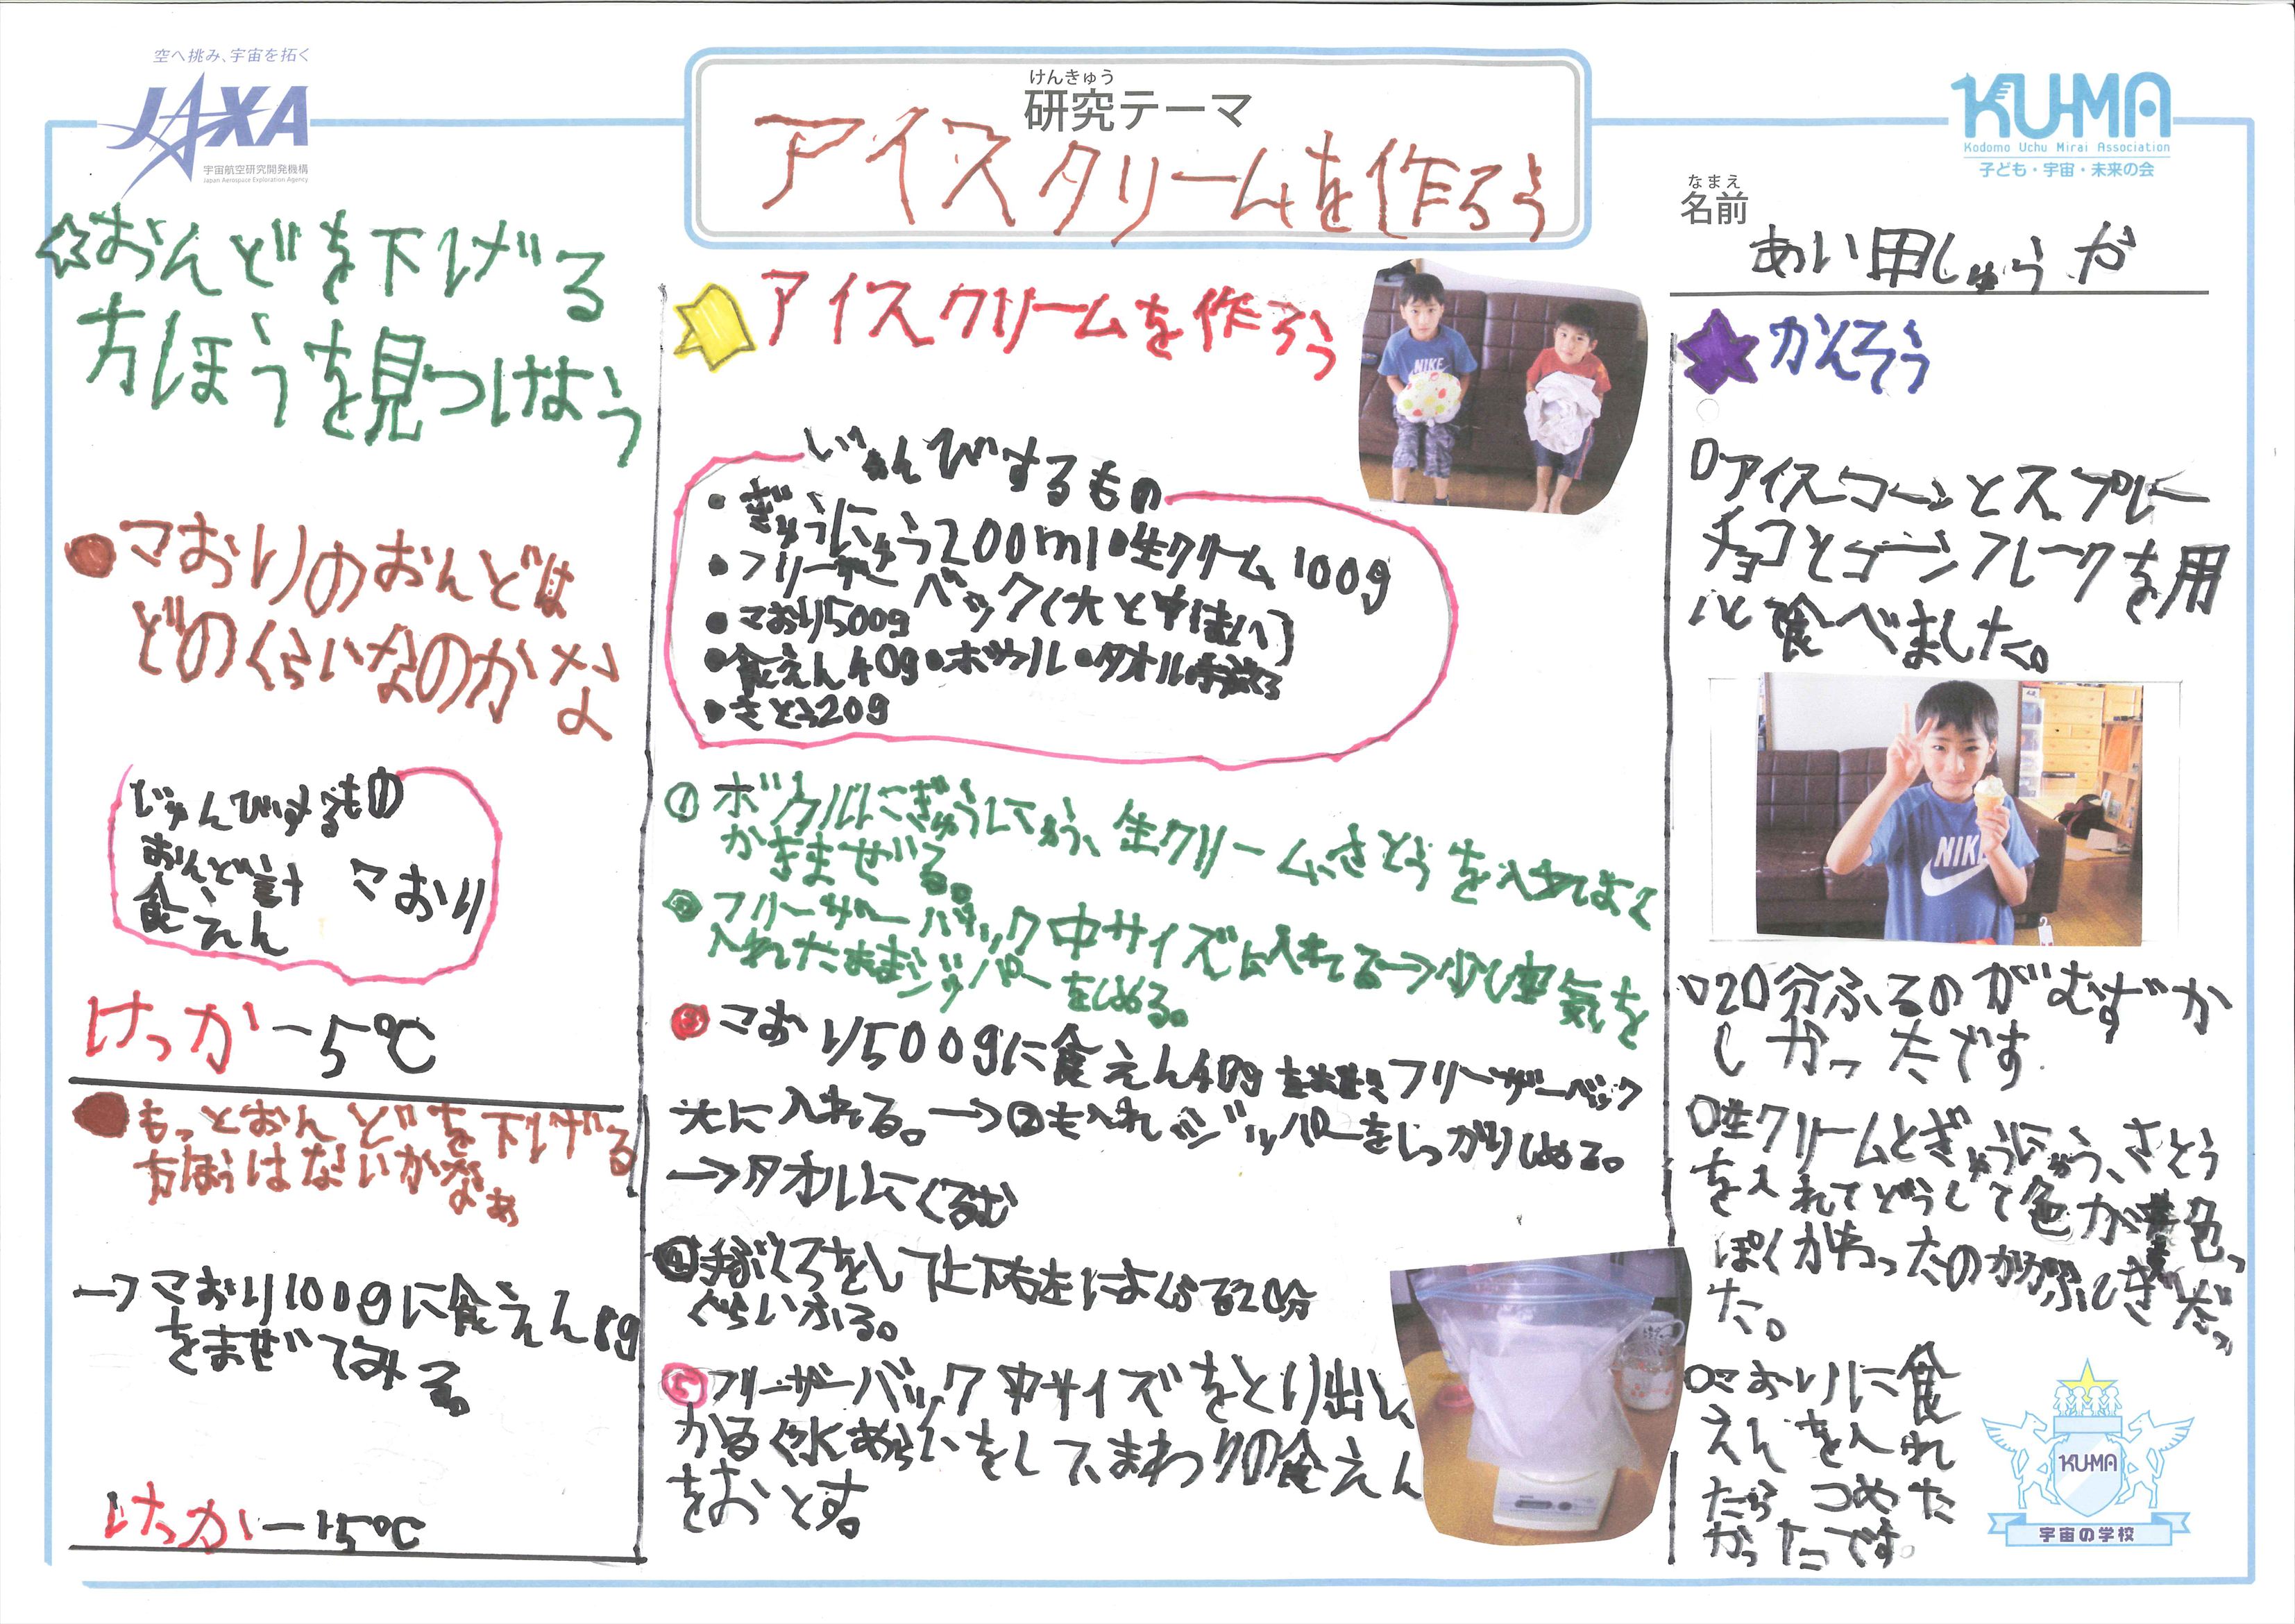 空へ挑み、宇宙を拓く
JAXA
宇宙航空研究開発機構
Japan Aerospace Exploration Agency
けんきゅう
研究テーマ
アイスクリームを作ろう
KU-MA
Kodomo Uchu Mirai Association
子ども・宇宙・未来の会
なまえ
名前
あい田しゅうが
☆おんどを下げる
方ほうを見つけよう
●こおりのおんどは
どのくらいなのかな
じゅんびするもの
おんど計 こおり
食えん
けっか −5℃
●もっとおんどを下げる
方ほうはないかなぁ
→こおり100gに食えん8g
をまぜてみる。
けっか −15℃
アイスクリームを作ろう
じゅんびするもの
・ぎゅうにゅう200ml・生クリーム100g
・フリーザーバック(大と中1まい)
・こおり500g
・食えん40g・ボウル・タオル・手ぶくろ
・さとう20g
①ボウルにぎゅうにゅう、生クリーム、さとうを入れてよく
かきまぜる。
②フリーザーバック中サイズに入れてる→少し空気を
入れたままジッパーをしめる。
③こおり500gに食えん40gをまぜ フリーザーバック
大に入れる。→②も入れジッパーをしっかりしめる。
→タオルにくるむ
④手ぶくろをして上下右左によくふる20分
ぐらいふる。
⑤フリーザーバック中サイズをとり出し
かるく水あらいをして、まわりの食えん
をおとす。
NIKE
かんそう
○アイスコーンとスプレー
チョコとコーンフレークを用
いて食べました。
NIKE
○20分ふるのがむずか
しかったです.
○生クリームとぎゅうにゅう、さとう
を入れてどうして色が黄色っ
ぽくかわったのかがふしぎだっ
た。
○こおりに食
えんを入れ
たら つめた
かったです。
KU-MA
宇宙の学校